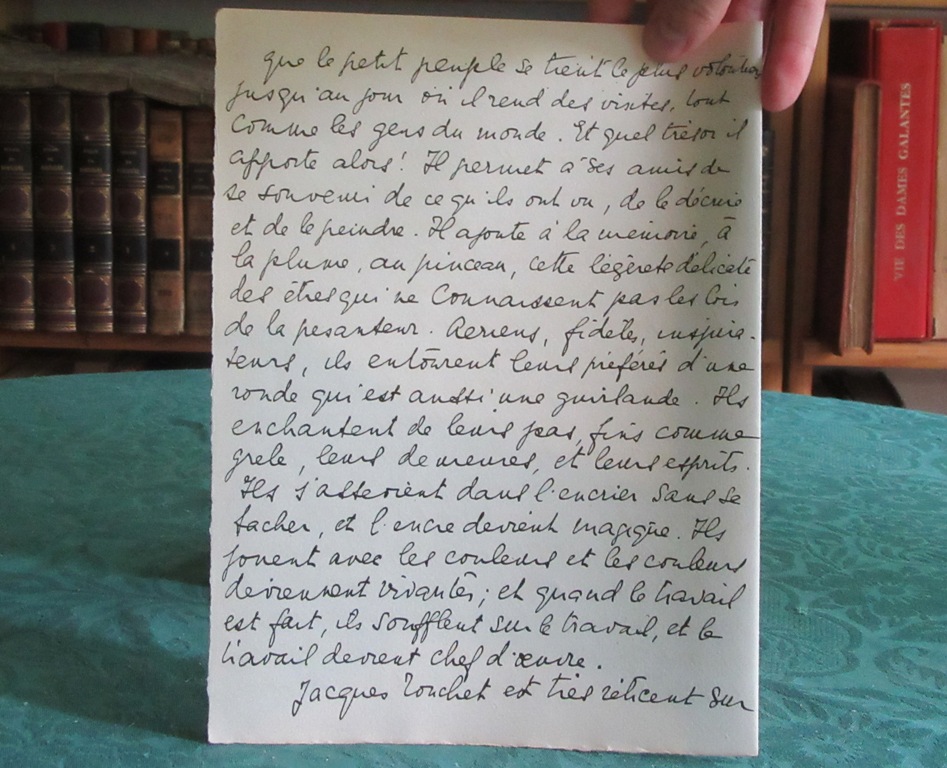 que le petit peuple se tient le plus volontiers
jusqu'au jour où il rend des visites, tout
comme les gens du monde. Et quel trésor il
apporte alors! Il permet à ses amis de
se souvenir de ce qu'ils ont vu, de le décrire
et de le peindre. Il ajoute à la mémoire, à
la plume, au pinceau, cette légèreté délicate
des êtres qui ne connaissent pas les lois
de la pesanteur. Aeriens, fidèles, inspira-
teurs, ils entourent leurs préférés d'une
ronde qui est aussi une guirlande. Ils
enchantent de leurs pas, fins comme
grele, leurs demeures, et leurs esprits.
Ils s'assevient dans l'encrier sans se
tacher, et l'encre devient magique. Ils
jouent avec les couleurs et les couleurs
deviennent vivantes; et quand le travail
est fait, ils soufflent sur le travail, et le
travail devient chef d'œuvre.
Jacques Touchet est très réticent sur
VIE DES DAMES GALANTES